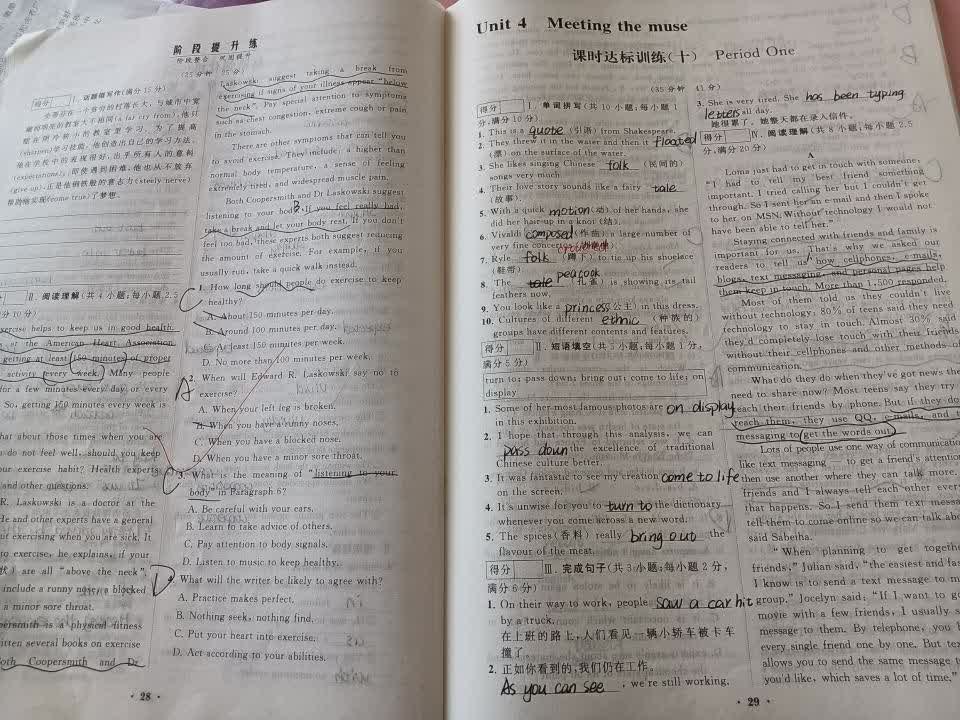 阶段提升练
阶段整合 巩固提升
(25分钟 25分)
得分
Ⅰ. 话题微写作(满分15分)
(a far cry from)
(sharpen)学习技能,他创造出自己的学习方法,
(expectations),即使遇到困难,他也从不放弃
(give up),正是他钢铁般的意志力(steely nerve)
帮助他实现(come true)了梦想。
Ⅱ. 阅读理解(共4小题;每小题2.5
分10分)
exercise helps to keep us in good health,
at the American Heart Association
getting at least 150 minutes of proper
activity every week. Many people
for a few minutes every day or every
So, getting 150 minutes every week is
what about those times when you are
do not feel well, should you keep
our exercise habit? Health experts
and other questions.
R. Laskowski is a doctor at the
He and other experts have a general
ut exercising when you are sick. It
to exercise, he explains, if your
状) are all "above the neck",
include a runny nose, a blocked
a minor sore throat.
opersmith is a physical fitness
ritten several books on exercise
Both Coopersmith and Dr
Laskowski suggest taking a break from
exercising if signs of your illness appear "below
the neck". Pay special attention to symptoms
such as chest congestion, extreme cough or pain
in the stomach.
There are other symptoms that can tell you
to avoid exercise. They include: a higher than
normal body temperature, a sense of feeling
extremely tired, and widespread muscle pain.
Both Coopersmith and Dr Laskowski suggest
listening to your body. If you feel really bad,
take a break and let your body rest. If you don't
feel too bad, these experts both suggest reducing
the amount of exercise. For example, if you
usually run, take a quick walk instead.
C 1. How long should people do exercise to keep
healthy?
A. About 150 minutes per day.
B. Around 100 minutes per day.
C. At least 150 minutes per week.
D. No more than 100 minutes per week.
A 2. When will Edward R. Laskowski say no to
exercise?
A. When your left leg is broken.
B. When you have a runny noses.
C. When you have a blocked nose.
D. When you have a minor sore throat.
C 3. What is the meaning of "listening to your
body" in Paragraph 6?
A. Be careful with your ears.
B. Learn to take advice of others.
C. Pay attention to body signals.
D. Listen to music to keep healthy.
D 4. What will the writer be likely to agree with?
A. Practice makes perfect.
B. Nothing seek, nothing find.
C. Put your heart into exercise.
D. Act according to your abilities.
· 28 ·
Unit 4 Meeting the muse
课时达标训练(十) Period One
(35分钟 41分)
得分
Ⅰ. 单词拼写(共10小题;每小题1
分,满分10分)
1. This is a quote (引语) from Shakespeare.
2. They threw it in the water and then it floated
(漂) on the surface of the water.
3. She likes singing Chinese folk (民间的)
songs very much.
4. Their love story sounds like a fairy tale
(故事).
5. With a quick motion(动) of her hands, she
did her hair up in a knot (结).
6. Vivaldi composed(作曲) a large number of
very fine concertos
crouched
7. Kyle folk (蹲下) to tie up his shoelace
(鞋带).
8. The tale peacock (孔雀) is showing its tail
feathers now.
9. You look like a princess(公主) in this dress.
10. Cultures of different ethnic (种族的)
groups have different contents and features.
得分
Ⅱ. 短语填空(共5小题;每小题1分,
满分5分)
turn to; pass down; bring out; come to life; on
display
1. Some of her most famous photos are on display
in this exhibition.
2. I hope that through this analysis, we can
pass down the excellence of traditional
Chinese culture better.
3. It was fantastic to see my creation come to life
on the screen.
4. It's unwise for you to turn to the dictionary
whenever you come across a new word.
5. The spices(香料) really bring out the
flavour of the meat.
得分
Ⅲ. 完成句子(共3小题;每小题2分,
满分6分)
1. On their way to work, people saw a car hit
by a truck.
在上班的路上,人们看见一辆小轿车被卡车
撞了。
2. 正如你看到的,我们仍在工作。
As you can see, we're still working.
3. She is very tired. She has been typing
letters all day.
她很累了。她整天都在录入信件。
得分
Ⅳ. 阅读理解(共8小题;每小题2.5
分,满分20分)
A
Loma just had to get in touch with someone.
"I had to tell my best friend something
important. I tried calling her but I couldn't get
through. So I sent her an e-mail and then I spoke
to her on MSN. Without technology I would not
have been able to tell her.
Staying connected with friends and family is
important for us. That's why we asked our
readers to tell us how cellphones, e-mails,
blogs, text messaging, and personal pages help
them keep in touch. More than 1,500 responded.
Most of them told us they couldn't live
without technology. 80% of teens said they need
technology to stay in touch. Almost 30% said
they'd completely lose touch with their friends
without their cellphones and other methods of
communication.
What do they do when they've got news the
need to share now? Most teens say they try
reach their friends by phone. But if they don
reach them, they use QQ, e-mails, and t
messaging to get the words out.
Lots of people use one way of communication
like text messaging to get a friend's attention
then use another where they can talk more.
friends and I always tell each other every
that happens. So I send them text message
tell them to come online so we can talk about
said Sabeiha.
"When planning to get together
friends," Julian said, "the easiest and fas
I know is to send a text message to m
group." Jocelyn said: "If I want to go
movie with a few friends, I usually s
message to them. By telephone, you h
every single friend one by one. But tex
allows you to send the same message to
you'd like, which saves a lot of time."
· 29 ·